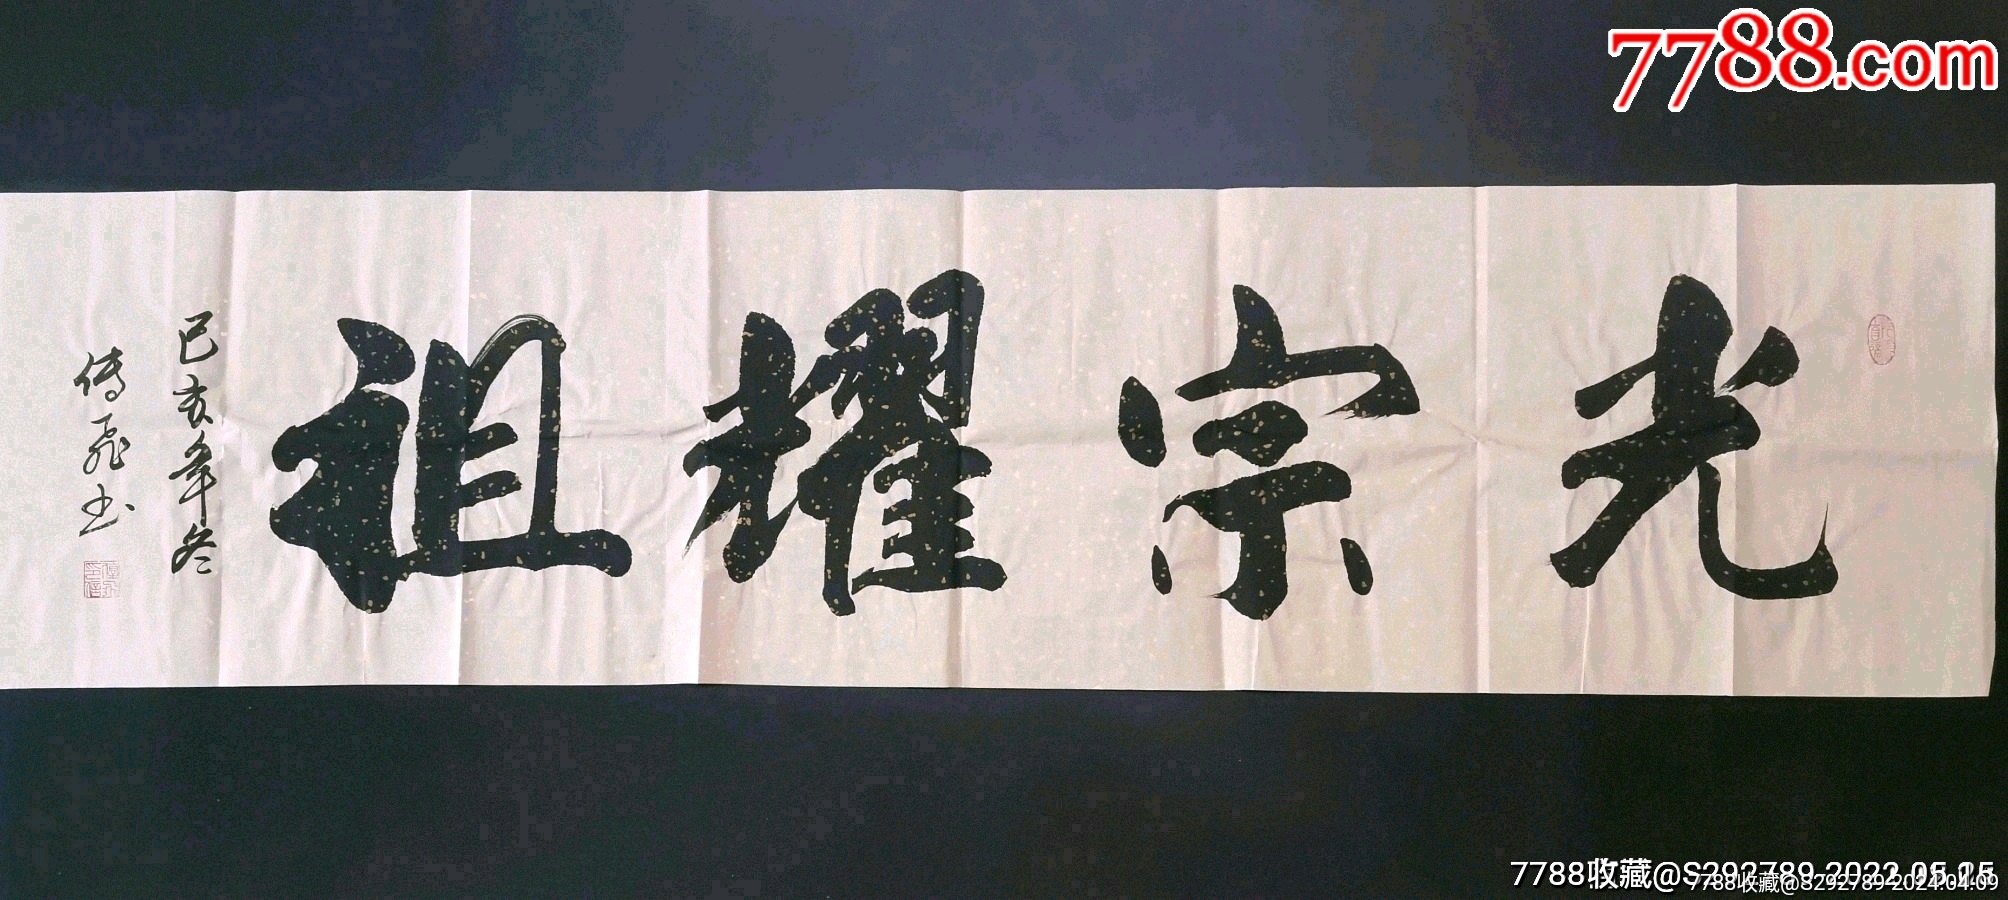 7788.com
光宗耀祖
己亥年冬
传飞书
7788收藏@S292789 2022.05.15
7788收藏@8292789 2024.04.09